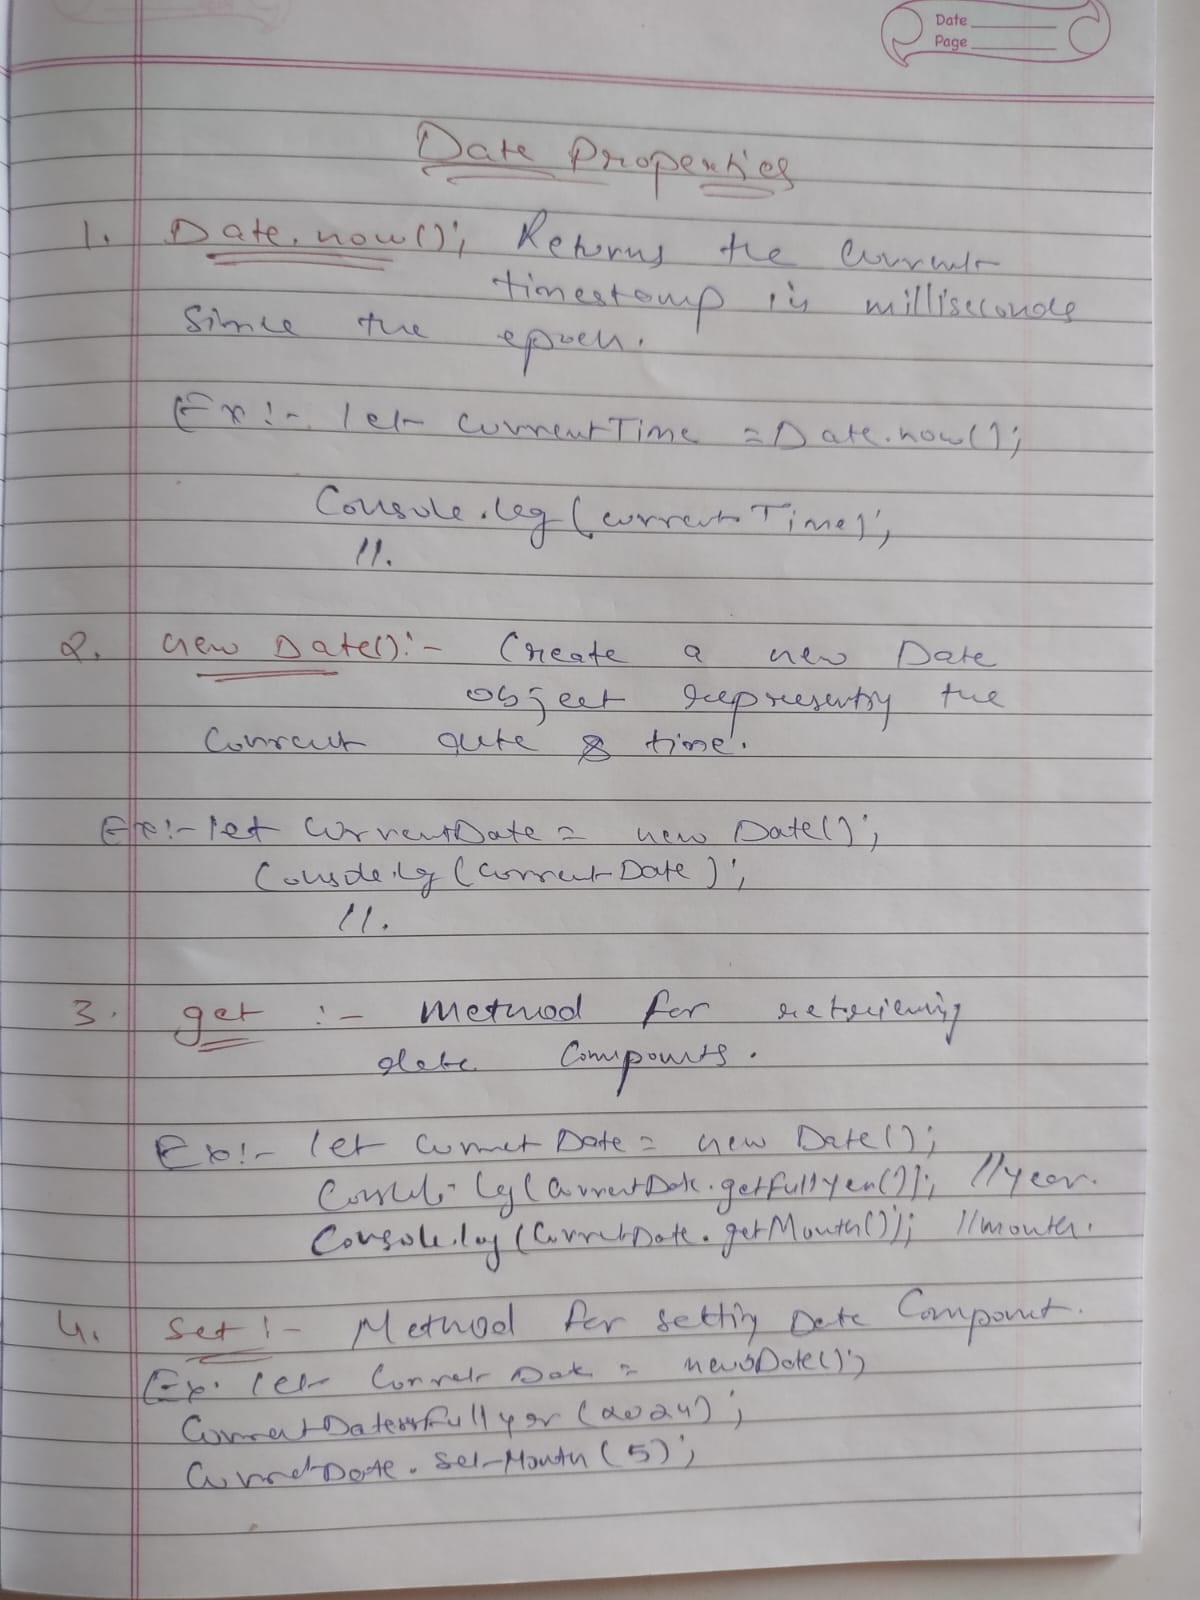 Date
Page
Date Properties
1. Date.now(); Returns the current
timestamp in milliseconds
Since the epoch.
Ex:- let currentTime = Date.now();
Console.log(currentTime);
//.
2. new Date():- Create a new Date
object representing the
Current date & time.
Ex:- let currentDate = new Date();
Console.log(currentDate);
//.
3. get :- Method for retrieving
date Components.
Ex:- let current Date = new Date();
Console.log(CurrentDate.getfullyear()); //year.
Console.log(CurrentDate.getMonth()); //month.
4. Set :- Method for setting Date Component.
Ex. let Current Date = new Date();
CurrentDate fullyear (2024);
CurrentDate.set-Month(5);